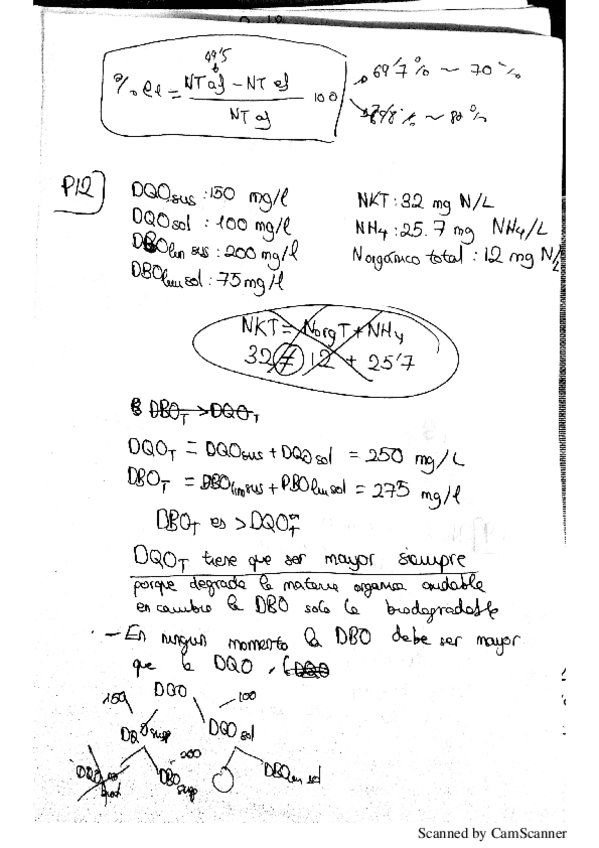 49'5
% El = NT af - NT ef / NT af · 100
69'7 % ~ 70 %
~ 80 %
P12
DQOsus : 150 mg/l
DQOsol : 100 mg/l
DBOlim sus : 200 mg/l
DBOlim sol : 75 mg/l
NKT : 32 mg N/L
NH4 : 25.7 mg NH4/L
Norgánico total : 12 mg N/L
NKT = NorgT + NH4
32 ≠ 12 + 25'7
DBOT > DQOT
DQOT = DQOsus + DQOsol = 250 mg/L
DBOT = DBOlimsus + DBOlimsol = 275 mg/l
DBOT es > DQOT
DQOT tiene que ser mayor siempre
porque degrada la materia organica oxidable
en cambio la DBO solo la biodegradable
- En ningun momento la DBO debe ser mayor
que la DQO
DQO
150
100
DQOsusp
DQOsol
200
DBOsusp
DBOlim sol
Scanned by CamScanner